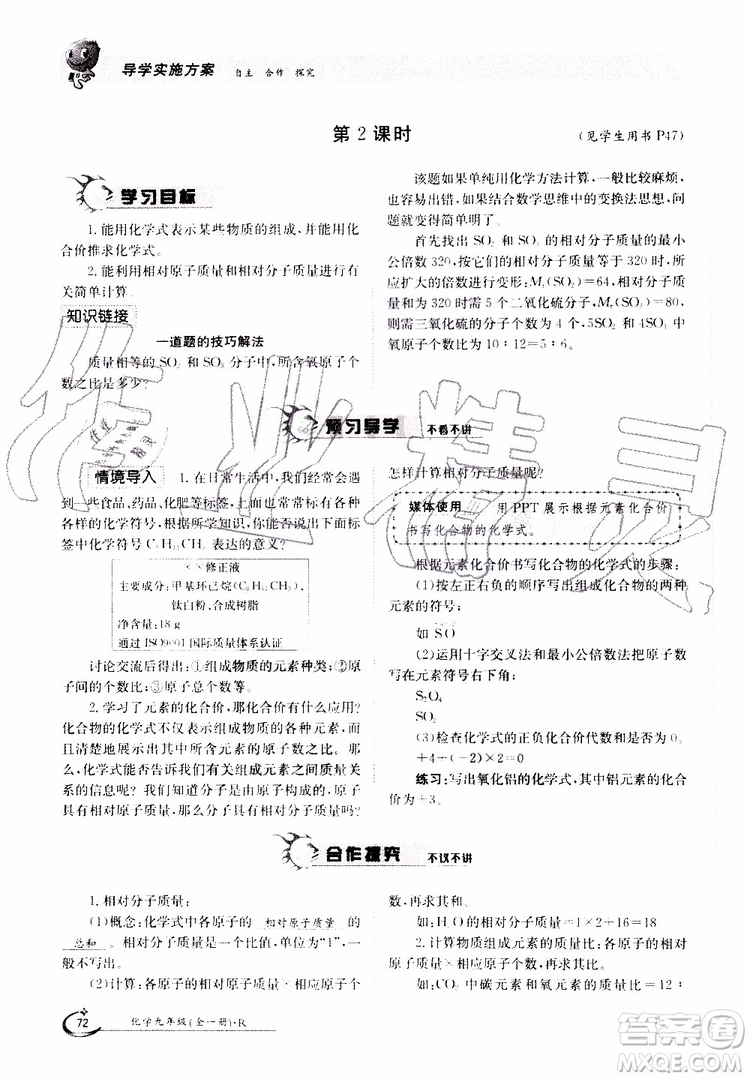 导学实施方案 自主 合作 探究
第 2 课时
(见学生用书 P47)
学习目标
1.能用化学式表示某些物质的组成,并能用化
合价推求化学式。
2.能利用相对原子质量和相对分子质量进行有
关简单计算。
知识链接
一道题的技巧解法
质量相等的 SO₂ 和 SO₃ 分子中,所含氧原子个
数之比是多少?
该题如果单纯用化学方法计算,一般比较麻烦,
易出错,如果结合数学思维中的变换法思想,问
题就变得简单明了。
首先找出 SO₂ 和 SO₃ 的相对分子质量的最小
公倍数 320,按它们的相对分子质量与 320 比较,所
应扩大的倍数进行变形:Mᵣ(SO₂)=64,相等质量
则需 5 个二氧化硫分子,5SO₂;Mᵣ(SO₃)=80,
则需三氧化硫的分子数为 4,4SO₃;5SO₂ 与 4SO₃ 中
氧原子个数为 10∶12=5∶6。
预习导学 不看不讲
情境导入 1.在日常生活中,我们经常会遇
到一些食品、药品、化肥等标签,上面标有各种各样
的化学符号。根据所学知识,你能说出下面标
签中化学符号 C₆H₁₁CH₃ 表达的意义?
××修正液
主要成分:甲基环己烷(C₆H₁₁CH₃)、
钛白粉、合成树脂
净含量:18 g
通过 ISO9001 国际质量体系认证
讨论交流后得出:①组成物质的元素种类;②原
子间的个数比;③原子总个数等。
2.学习了元素的化合价,化合价有什么应用?
化合物的化学式不仅表示组成物质的各种元素,而
且清楚地展示了其中所含元素的原子个数比。那
么,化学式能否告诉我们有关组成元素之间质量关
系的信息呢?我们知道分子是由原子构成的,原子
具有相对原子质量,那么分子是否有相对分子质量?
怎样计算相对分子质量呢?
媒体使用 用 PPT 展示根据元素化合价
书写化合物的化学式。
根据元素化合价书写化合物的化学式的步骤:
(1)按左正右负的顺序写出组成化合物的两种
元素的符号;
如 SO
(2)运用十字交叉法和最小公倍数法把原子数
写在元素符号右下角。
S₂O₄
SO₂
(3)检查化学式的正负化合价代数和是否为0。
+4+(-2)×2=0
练习:写出氧化铝的化学式,其中铝元素的化合
价为+3。
合作探究 不议不讲
1.相对分子质量:
(1)概念:化学式中各原子的 相对原子质量 的
总和 。是一个比值,单位为“1”,一
般不写出。
(2)计算:各原子的相对原子质量乘原子个
数,再求其和。
如:H₂O=1×2+16=18
2.计算物质组成元素的质量比:各元素的相对
原子质量与原子个数乘积之比。
如:CO₂ 中碳元素和氧元素的质量比
72
化学九年级(全一册)·R
作业精灵
作业
精灵
答案圈
MXQE.COM